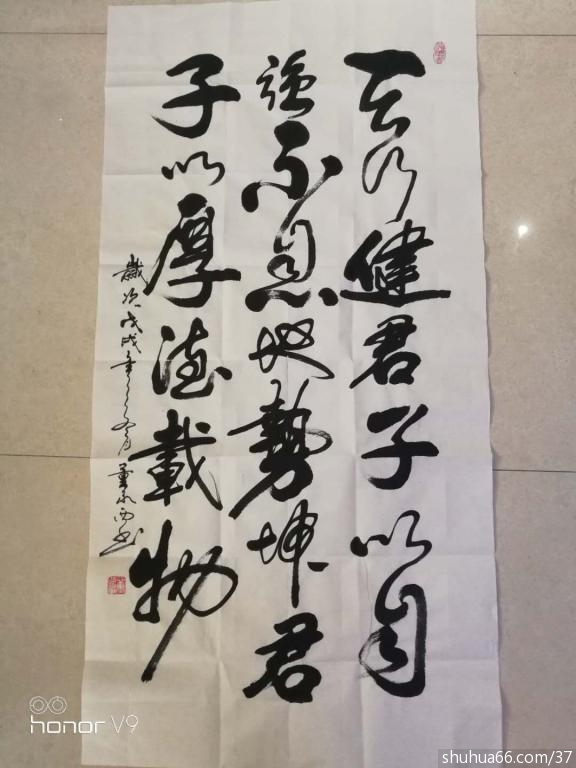 天行健君子以自
强不息地势坤君
子以厚德载物
岁次戊戌年
书
HONOR V9
shuhua66.com/37